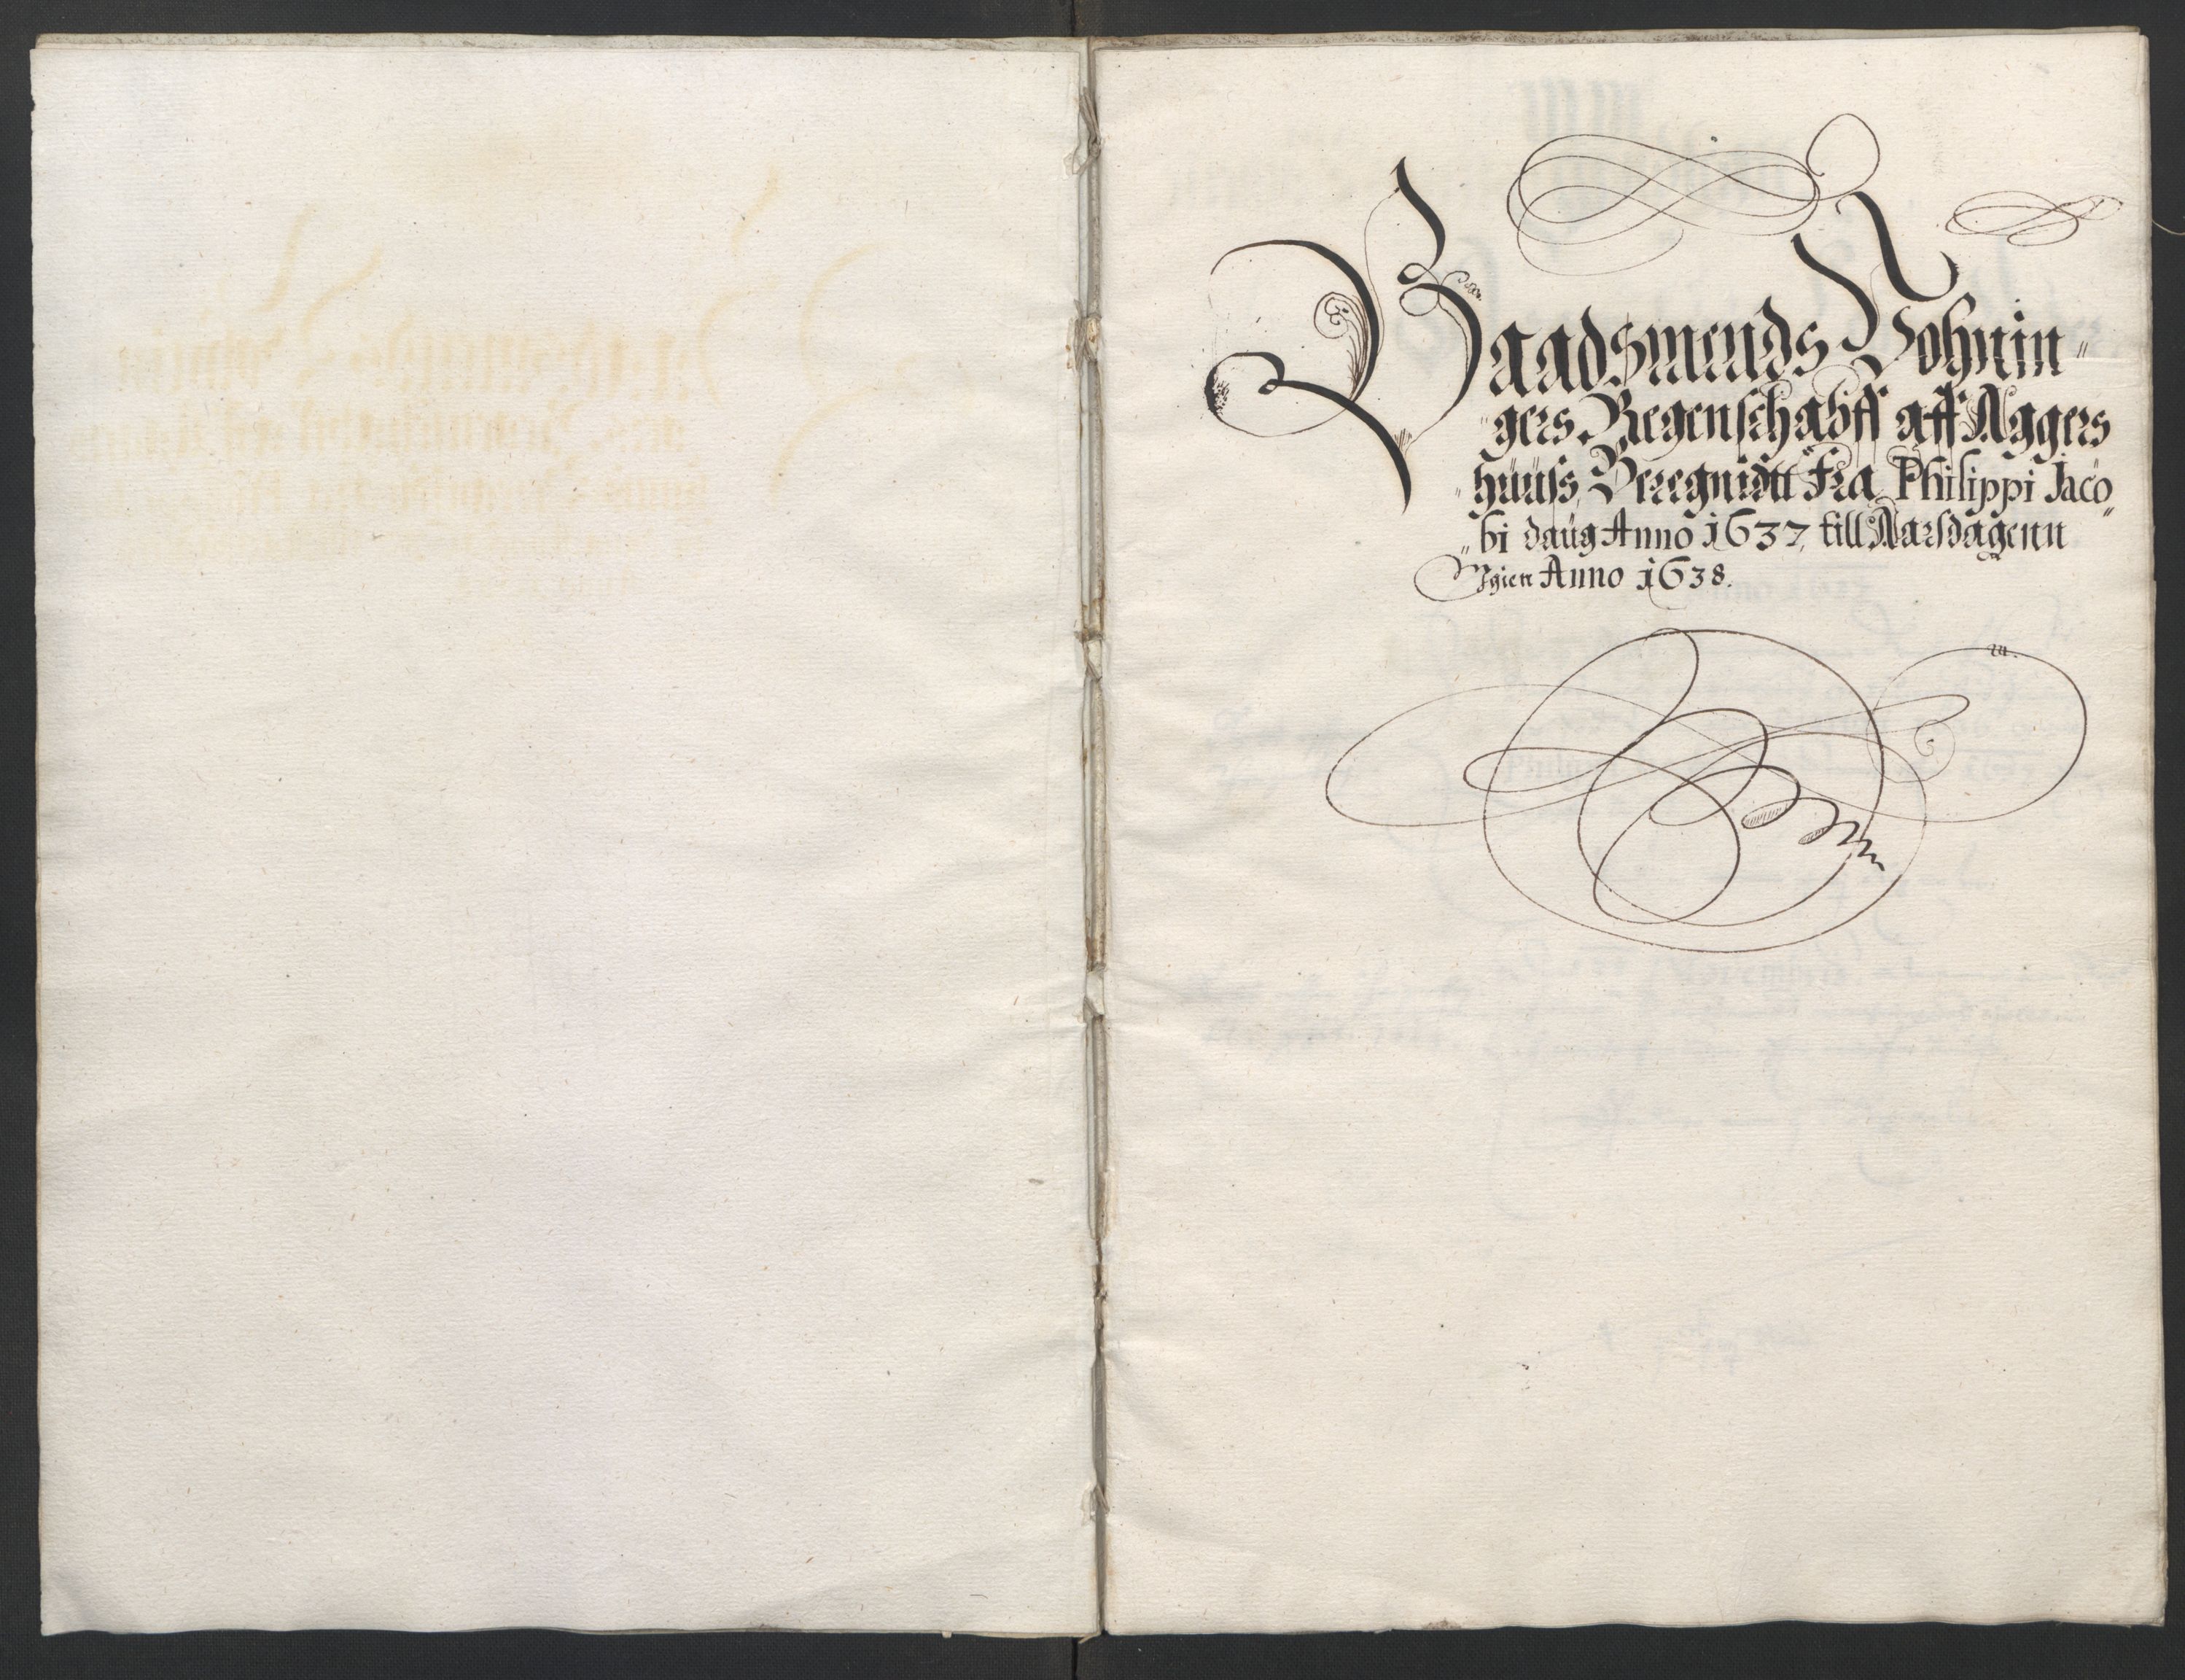 Baadsmends Pohnin„
„gers Regenschabff aff Aggers
„huuss, Beregnidtt fra Philippi Jaco„
„bi daug Anno 1637, till Aarsdagenn
Igien Anno 1638.